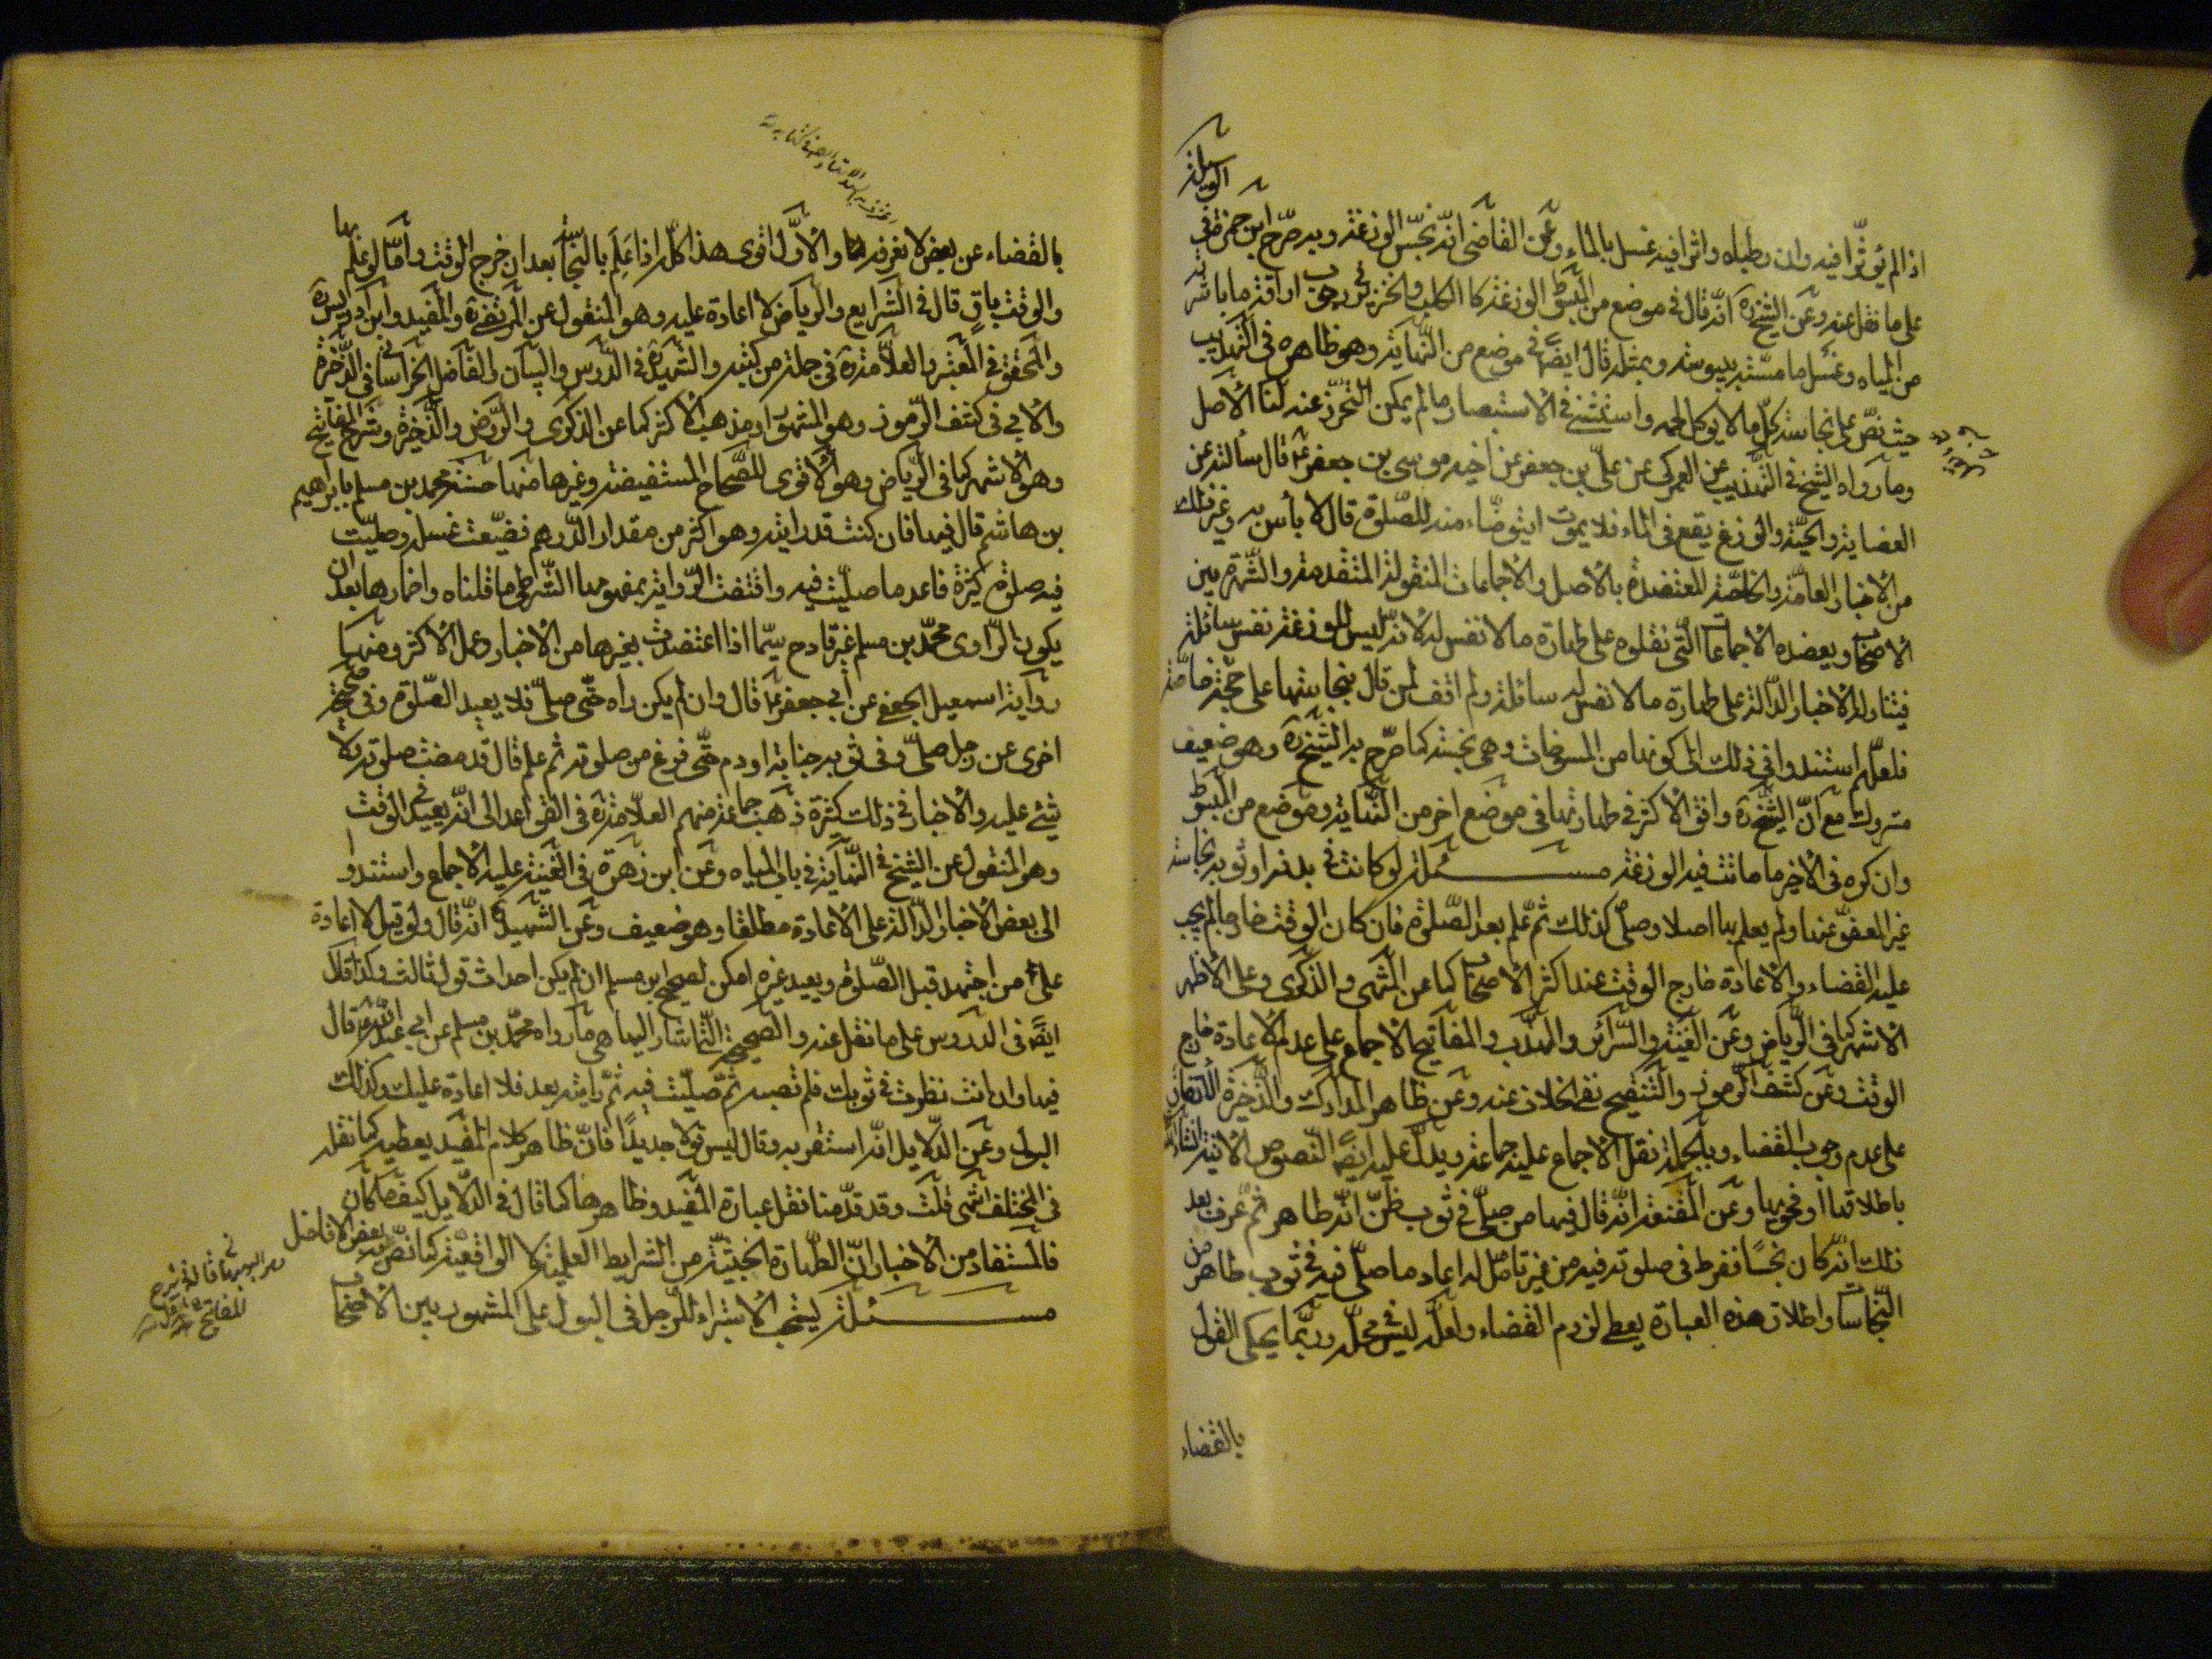 الوسيلة
اذا لم يؤثرا فيه وان رطباه واثرا فيه غسل بالماء وعن القاضي انه نجس الوزغة وبه صرح ابن حمزة في
على ما نقل عنه وعن الشيخ ره انه قال في موضع من المبسوط الوزغة كالكلب والخنزير في وجوب اراقة ما باشرته
من المياه وغسل ما مسته بيبوسة وبمثله قال ايضا في موضع من النهاية وهو ظاهره في التهذيب
حيث نص على نجاسة كل ما لا يوكل لحمه واستثنى في الاستبصار ما لم يمكن التحرز عنه لنا الاصل
وما رواه الشيخ في التهذيب عن العمركي عن علي بن جعفر عن اخيه موسى بن جعفر ع قال سألته عن
العضاية والحية والوزغ يقع في الماء فلا يموت ايتوضاء منه للصلوة قال لا بأس به وغير ذلك
من الاخبار العامة والخاصة المعتضدة بالاصل والاجماعات المنقولة المتقدمة والشهرة بين
الاصحاب ويعضده الاجماعات التي نقلوه على طهارة ما لا نفس له لانه ليس للوزغة نفس سائلة
فيتناوله الاخبار الدالة على طهارة ما لا نفس له سائلة ولم اقف لمن قال بنجاستها على حجة خاصة
فلعلهم استندوا في ذلك الى كونها من المسوخات وهي نجسة كما صرح به الشيخ ره وهو ضعيف
متروك مع ان الشيخ ره وافق الاكثر في طهارتها في موضع اخر من النهاية وموضع من المبسوط
وان كره في الاخير ما ماتت فيه الوزغة مسئلة لو كانت في بدنه او ثوبه نجاسة
غير المعفو عنها ولم يعلم بها اصلا وصلى كذلك ثم علم بعد الصلوة فان كان الوقت خارجا لم يجب
عليه القضاء والاعادة خارج الوقت عند اكثر الاصحاب كما عن المنتهى والذكرى وعلى الاظهر
الاشهر كما في الرياض وعن الغنية والسرائر والمهذب والمفاتيح الاجماع على عدم الاعادة خارج
الوقت وعن كشف الرموز والتنقيح نفي الخلاف عنه وعن ظاهر المدارك والذخيرة الاتفاق
على عدم وجوب القضاء وبالجملة نقل الاجماع عليه جماعة ويدل عليه ايضا النصوص الاتية
باطلاقها او فحويها وعن المقنعة انه قال فيها من صلى في ثوب ظن انه طاهر ثم عرف بعد
ذلك انه كان نجسا ففرط في صلوته فيه من غير تامل له اعاد ما صلى فيه في ثوب طاهر من
النجاسات واطلاق هذه العبارة يعطي لزوم القضاء ولعله ليس في محله وربما يحكى القول
بالقضاء
بالقضاء عن بعض لا نعرفه والاول اقوى هذا كله اذا علم بالنجاسة بعد ان خرج الوقت واما لو علم بها
والوقت باق قال في الشرايع والرياض لا اعادة عليه وهو المنقول عن المرتضى ره والمفيد وابن ادريس ره
والمحقق في المعتبر والعلامة ره في جملة من كتبه والشهيد ره في الدروس والبيان والفاضل الخراساني في الذخيرة
والابي في كشف الرموز وهو المشهور او مذهب الاكثر كما عن الذكرى والروض والذخيرة وشرح المفاتيح
وهو الاشهر كما في الرياض وهو الاقوى للصحاح المستفيضة وغيرها منها حسنة محمد بن مسلم بابراهيم
بن هاشم قال فيها فان كنت قد رايته وهو اكثر من مقدار الدرهم فضيعت غسله وصليت
فيه صلوة كثيرة فاعد ما صليت فيه واقتضت الرواية بمفهومها الشرطي ما قلناه واضمارها بعد ان
يكون الراوي محمد بن مسلم غير قادح سيما اذا اعتضدت بغيرها من الاخبار وعمل الاكثر ومنها
رواية اسمعيل الجعفي عن ابي جعفر ع قال وان لم يكن راه حتى صلى فلا يعيد الصلوة وفي صحيحة
اخرى عن رجل صلى وفي ثوبه جنابة او دم حتى فرغ من صلوته ثم علم قال قد مضت صلوته ولا
شيء عليه والاخبار في ذلك كثيرة ذهب جماعة منهم العلامة ره في القواعد الى انه يعيد في الوقت
وهو المنقول عن الشيخ في النهاية في باب المياه وعن ابن زهرة في الغنية عليه الاجماع واستندوا
الى بعض الاخبار الدالة على الاعادة مطلقا وهو ضعيف وعن الشهيد انه قال ولو قيل لا اعادة
على من اجتهد قبل الصلوة ويعيد غيره امكن لصحيح ابن مسلم ان لم يكن احداث قول ثالث وكذا قال
ايضا في الدروس على ما نقل عنه والصحيحة التي اشار اليها هي ما رواه محمد بن مسلم عن ابي عبد الله ع قال
فيها وان انت نظرت في ثوبك فلم تصبه ثم صليت فيه ثم رايته بعد فلا اعادة عليك وكذلك
البول وعن الدلايل انه استقر به وقال ليس قولا جديدا فان ظاهر كلام المفيد يعطيه كما نقله
في المختلف انتهى قلت وقد قدمنا نقل عبارة المفيد وظاهرها كما قال في الدلايل كيف ما كان
فالمستفاد من الاخبار ان الطهارة الخبثية من الشرايط العلمية لا الواقعية كما نص به بعض الافاضل
مسئلة يستحب الاستبراء للرجل في البول على المشهور بين الاصحاب